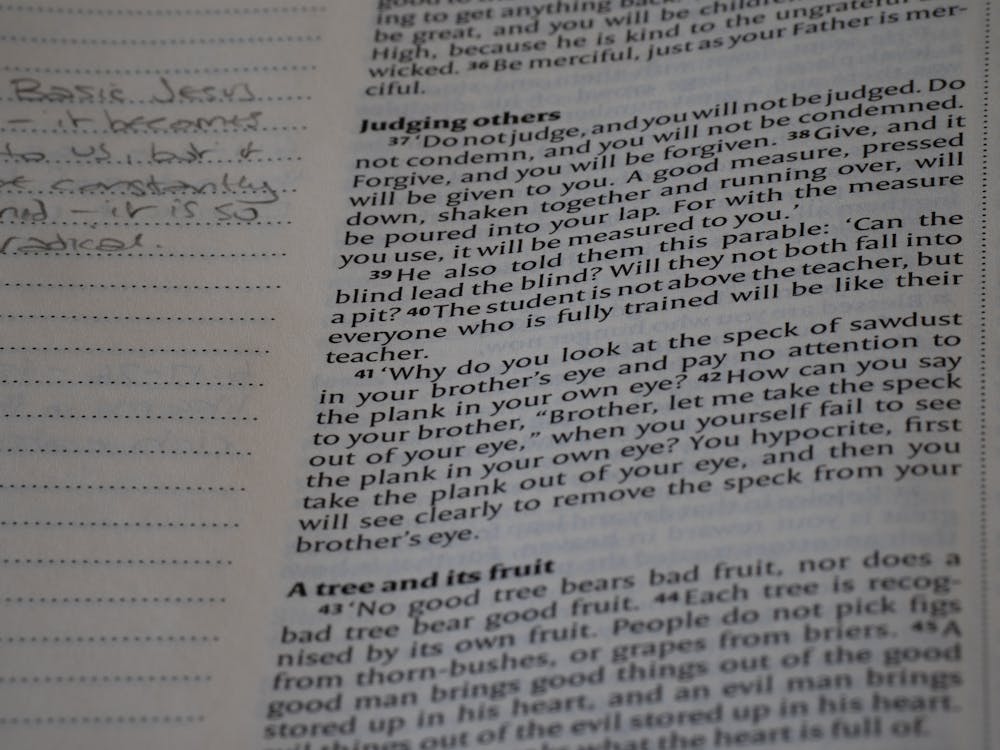 Basic Jesus
– it becomes
to us, but it
constantly
– it is so
radical.
good to
ing to get anything back.
be great, and you will be children
High, because he is kind to the ungrateful
wicked. 36 Be merciful, just as your Father is mer-
ciful.
Judging others
37 ‘Do not judge, and you will not be judged. Do
not condemn, and you will not be condemned.
Forgive, and you will be forgiven. 38 Give, and it
will be given to you. A good measure, pressed
down, shaken together and running over, will
be poured into your lap. For with the measure
you use, it will be measured to you.’
39 He also told them this parable: ‘Can the
blind lead the blind? Will they not both fall into
a pit? 40 The student is not above the teacher, but
everyone who is fully trained will be like their
teacher.
41 ‘Why do you look at the speck of sawdust
in your brother’s eye and pay no attention to
the plank in your own eye? 42 How can you say
to your brother, “Brother, let me take the speck
out of your eye,” when you yourself fail to see
the plank in your own eye? You hypocrite, first
take the plank out of your eye, and then you
will see clearly to remove the speck from your
brother’s eye.
A tree and its fruit
43 ‘No good tree bears bad fruit, nor does a
bad tree bear good fruit. 44 Each tree is recog-
nised by its own fruit. People do not pick figs
from thorn-bushes, or grapes from briers. 45 A
good man brings good things out of the good
stored up in his heart, and an evil man brings
evil things out of the evil stored up in his heart.
what the heart is full of.